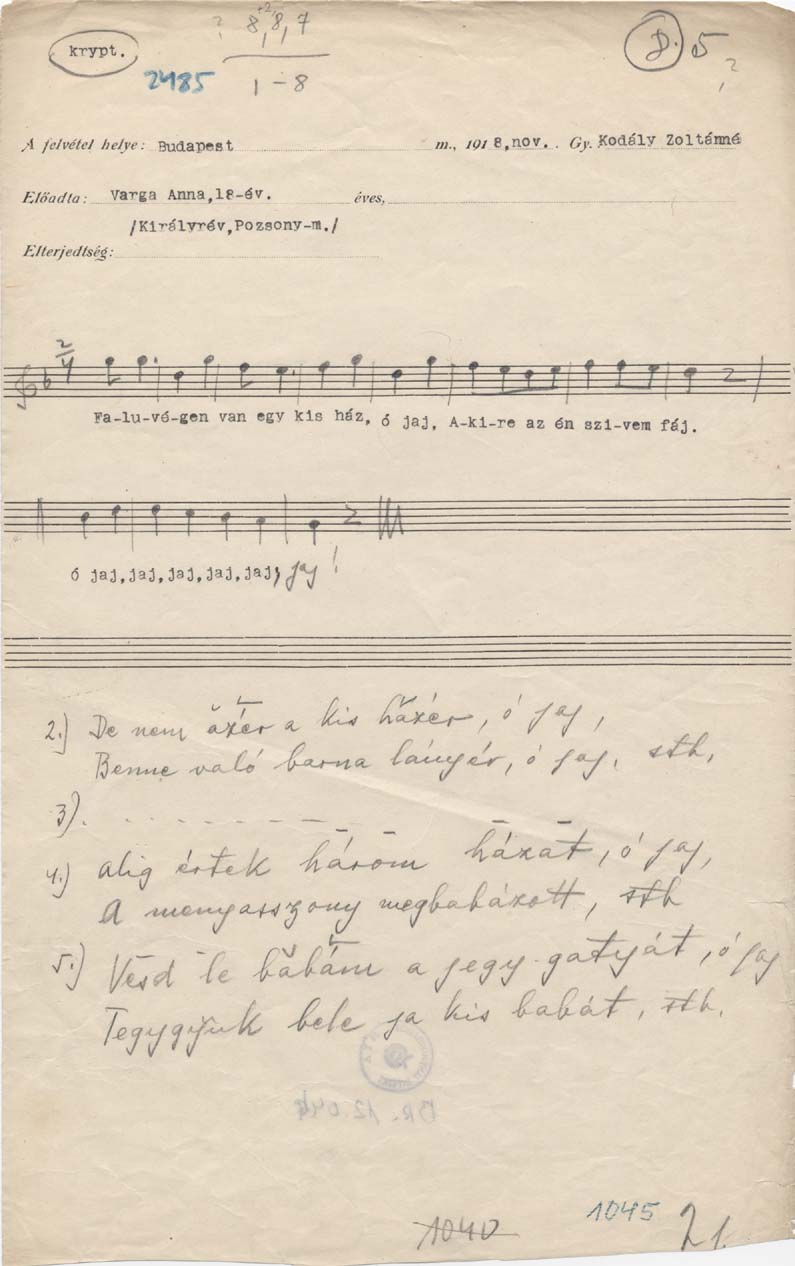 krypt.
? 8,8,7
8. 5
?
2485
1-8
A felvétel helye: Budapest m., 1918,nov. Gy. Kodály Zoltánné
Előadta: Varga Anna,18-év. éves,
/Királyrév,Pozsony-m./
Elterjedtség:
2/4
Fa-lu-vé-gen van egy kis ház, ó jaj, A-ki-re az én szi-vem fáj.
ó jaj,jaj,jaj,jaj,jaj, jaj!
2.) De nem ăzér a kis hăzér, ó jaj,
Benne való barna lányér, ó jaj, stb,
3). - - - - - - - -
4.) alig értek hārōm házāt, ó jaj,
A menyasszony megbabázott, stb
5.) Vesd le băbám a jegy-gatyāt, ó jaj
Tegygyük bele ja kis babát, stb.
BR. 12.044
1040
1045
21.